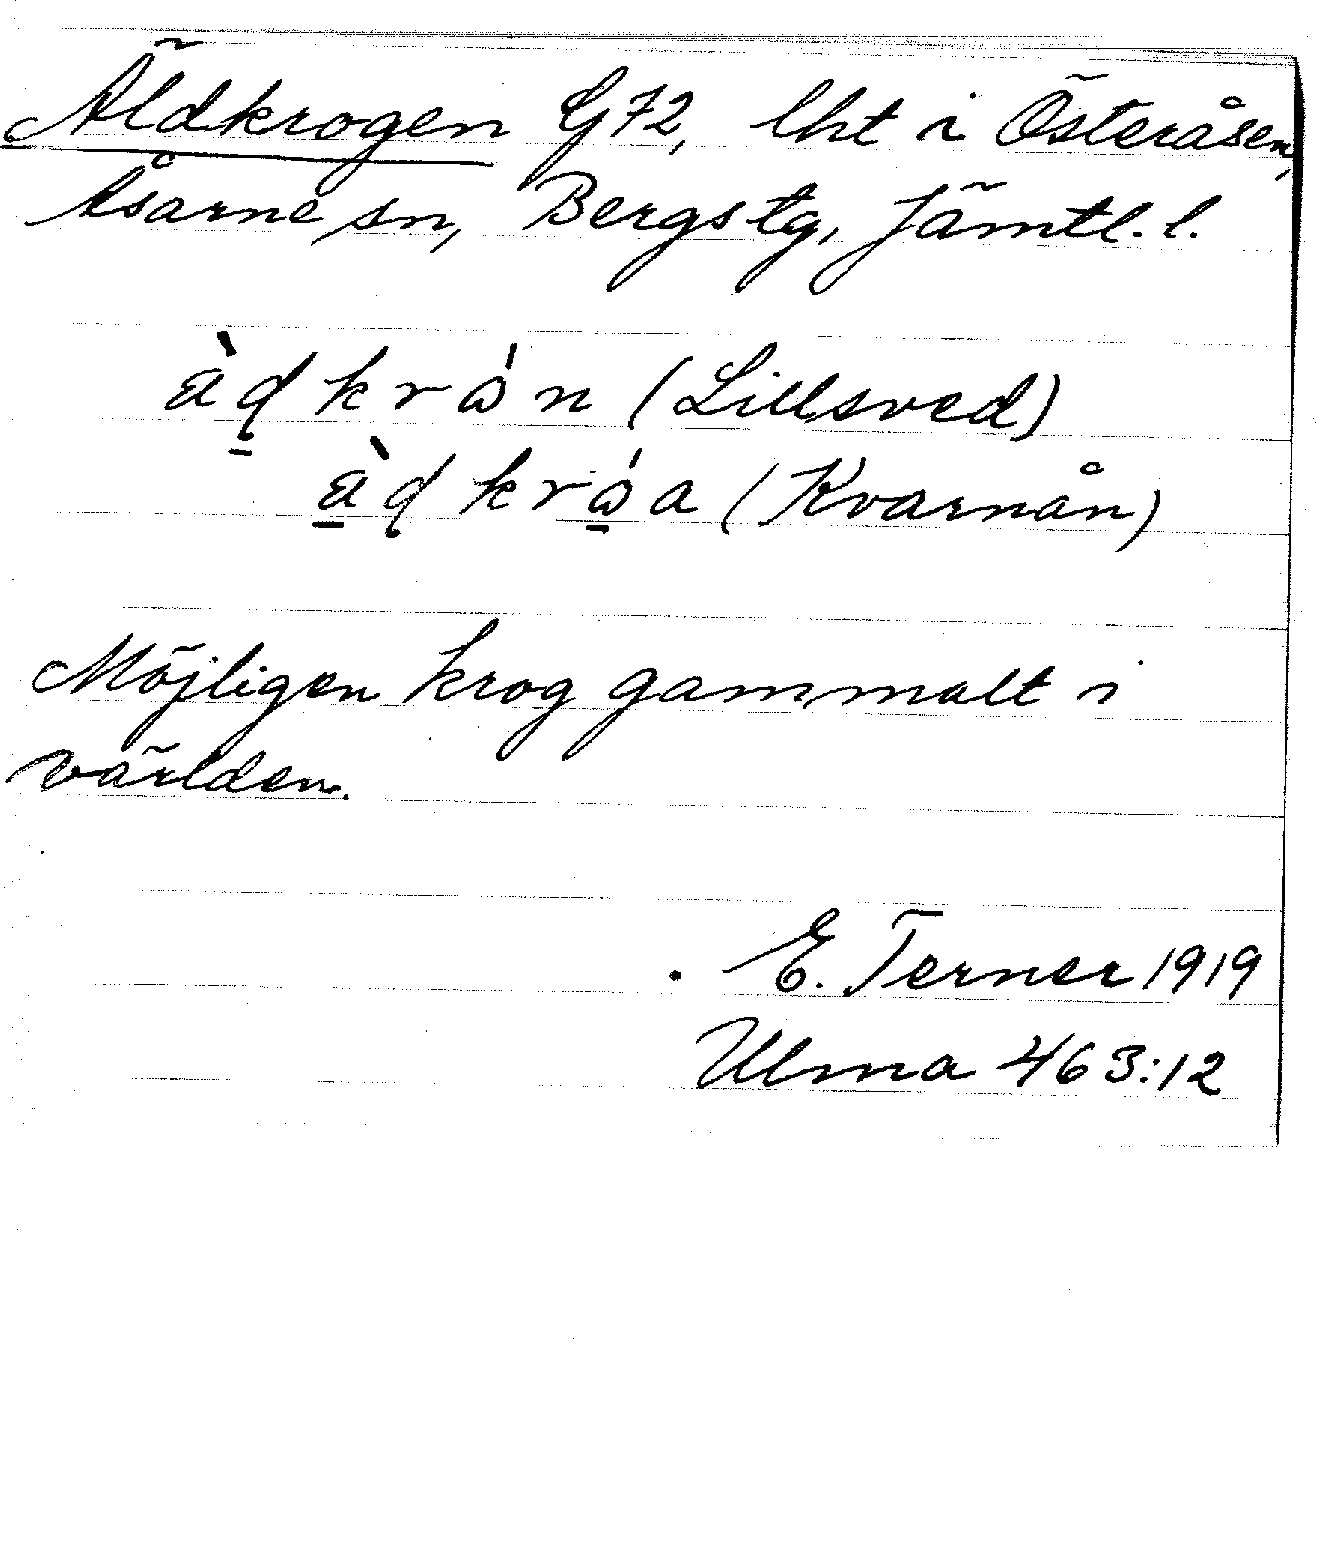 Äldkrogen G72, lht i Österåsen,
Åsarne sn, Bergs tg, Jämtl. l.
àd̠krɷ́n (Lillsved)
à̠dkrɷ̠́a (Kvarnån)
Möjligen krog gammalt i
världen.
E. Terner 1919
Ulma 463:12